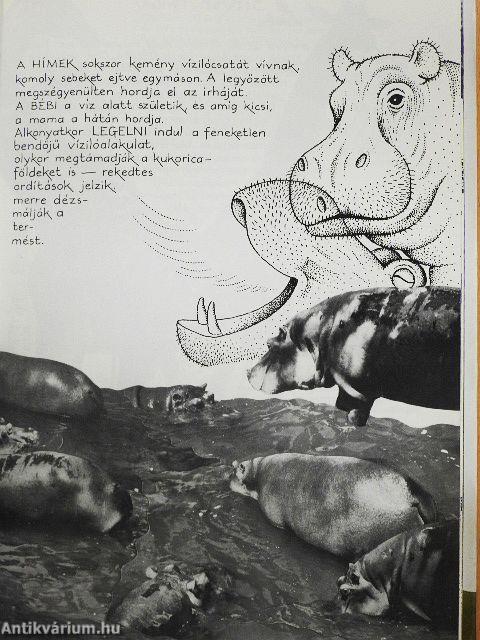 A HÍMEK sokszor kemény vízilócsatát vívnak,
komoly sebeket ejtve egymáson. A legyőzött
megszégyenülten hordja el az irháját.
A BÉBI a víz alatt születik, és amíg kicsi,
a mama a hátán hordja.
Alkonyatkor LEGELNI indul a feneketlen
bendőjű vízilóalakulat,
olykor megtámadják a kukorica-
földeket is — rekedtes
ordítások jelzik,
merre dézs-
málják a
ter-
mést.
Antikvárium.hu